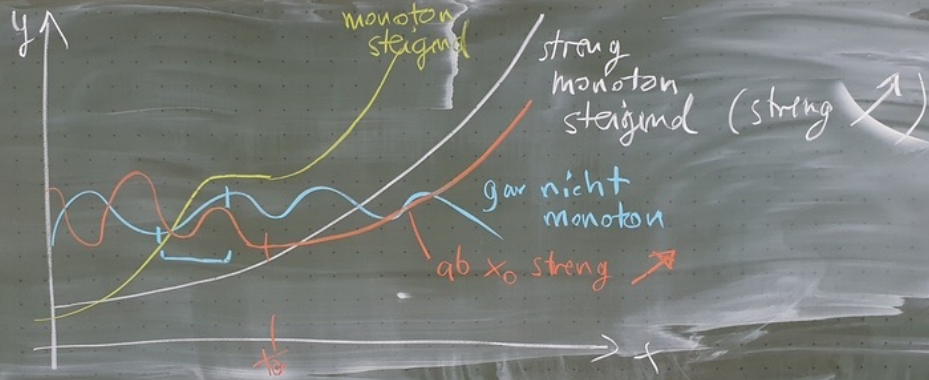 y
monoton
steigend
streng
monoton
steigend (streng ↗)
gar nicht
monoton
ab x₀ streng ↗
x₀
x